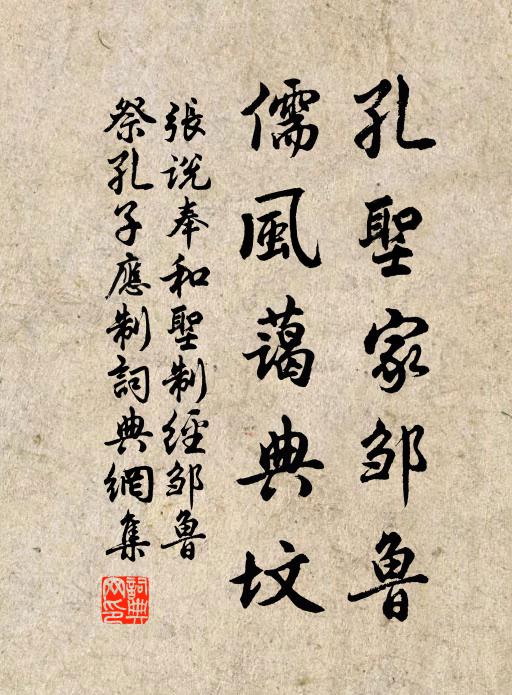 孔聖家邹魯
儒風藹典坟
張説奉和聖制經邹魯
祭孔子應制詞典網集
詞典网印